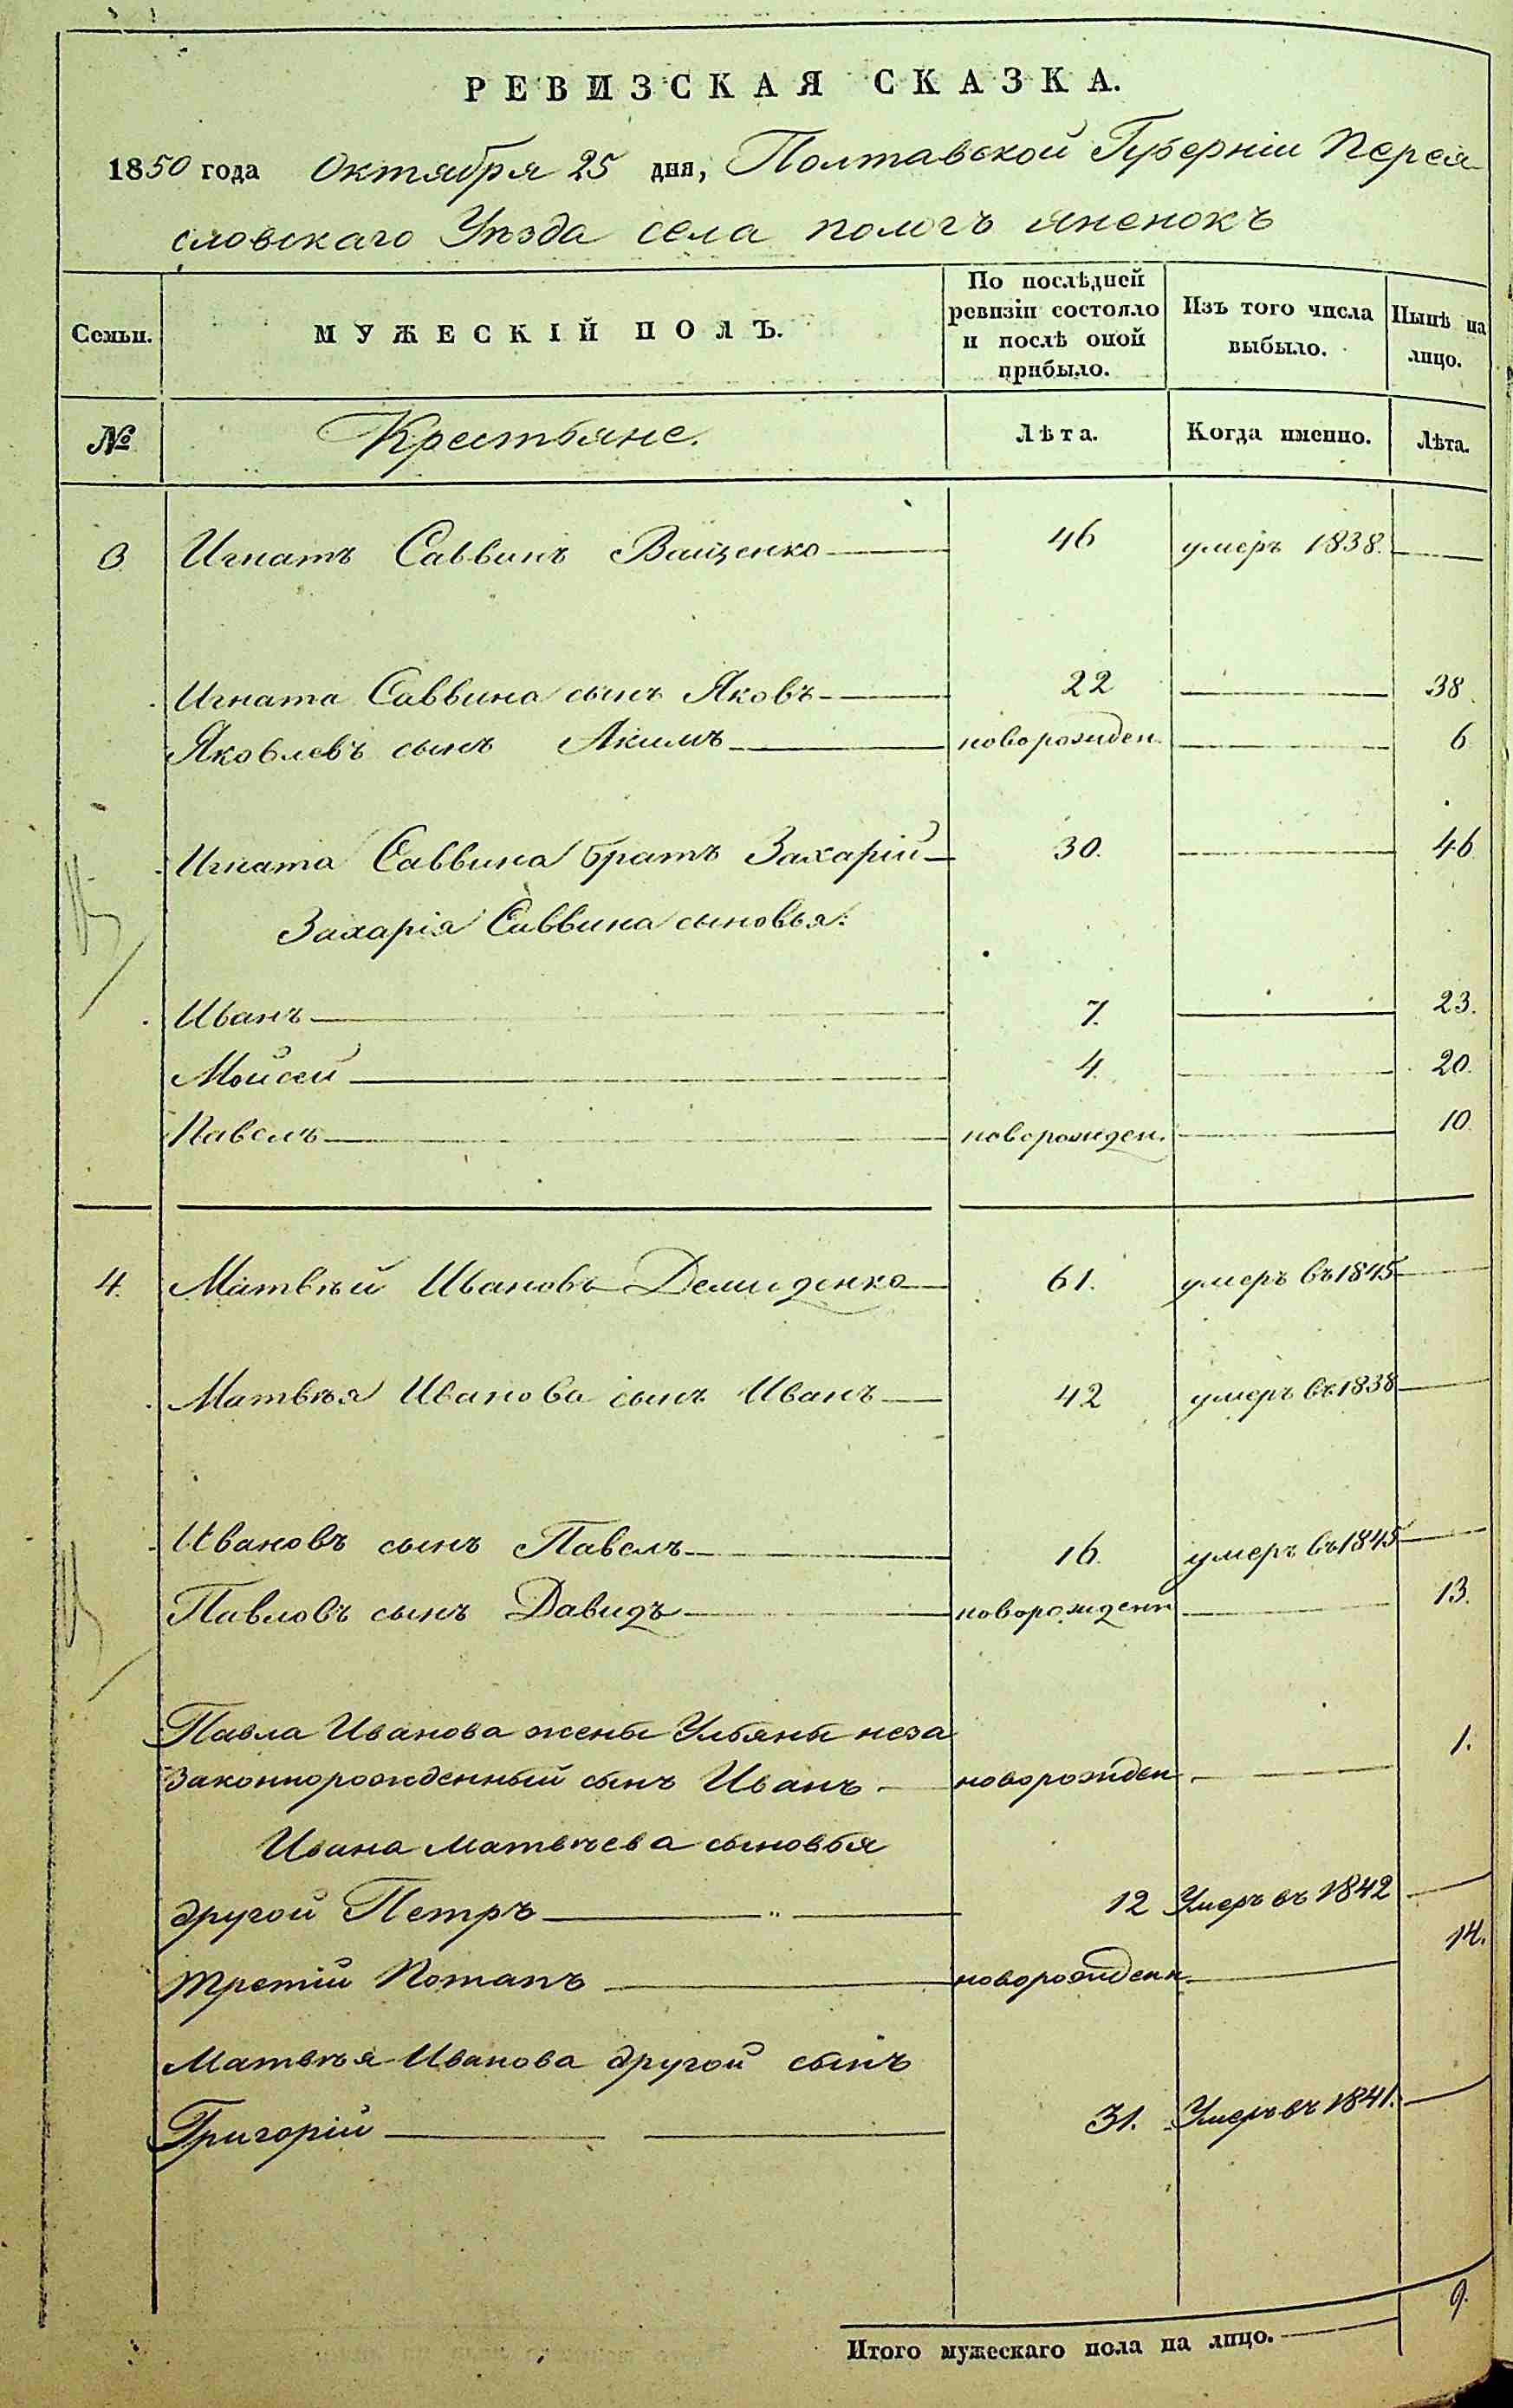 РЕВИЗСКАЯ СКАЗКА.
1850 года Октября 25 дня, Полтавской Губерніи Перея
словскаго Уѣзда села пологъ яненокъ
Семьи.
МУЖЕСКІЙ ПОЛЪ.
По послѣдней ревизіи состояло и послѣ оной прибыло.
Изъ того числа выбыло.
Нынѣ на лицо.
№ Крестьяне. Лѣта. Когда именно. Лѣта.
3 Игнатъ Саввинъ Ващенко 46 умеръ 1838.
Игната Саввина сынъ Яковъ 22 38
Яковлевъ сынъ Акимъ новорожден. 6
Игната Саввина братъ Захарій 30. 46
Захарія Саввина сыновья:
Иванъ 7. 23.
Мойсей 4. 20.
Павелъ новорожден. 10
4. Матвѣй Ивановъ Демиденко 61. умеръ въ 1845
Матвѣя Иванова сынъ Иванъ 42 умеръ въ 1838
Ивановъ сынъ Павелъ 16. умеръ въ 1845
Павловъ сынъ Давидъ новорожденн 13.
Павла Иванова жены Ульяны неза
законнорожденный сынъ Иванъ новорожден 1.
Ивана Матвѣева сыновья
другой Петръ 12 Умеръ въ 1842
третій Потапъ новорожденн. 14.
Матвѣя Иванова другой сынъ
Григорій 31. Умеръ въ 1841.
Итого мужескаго пола на лицо. 9.